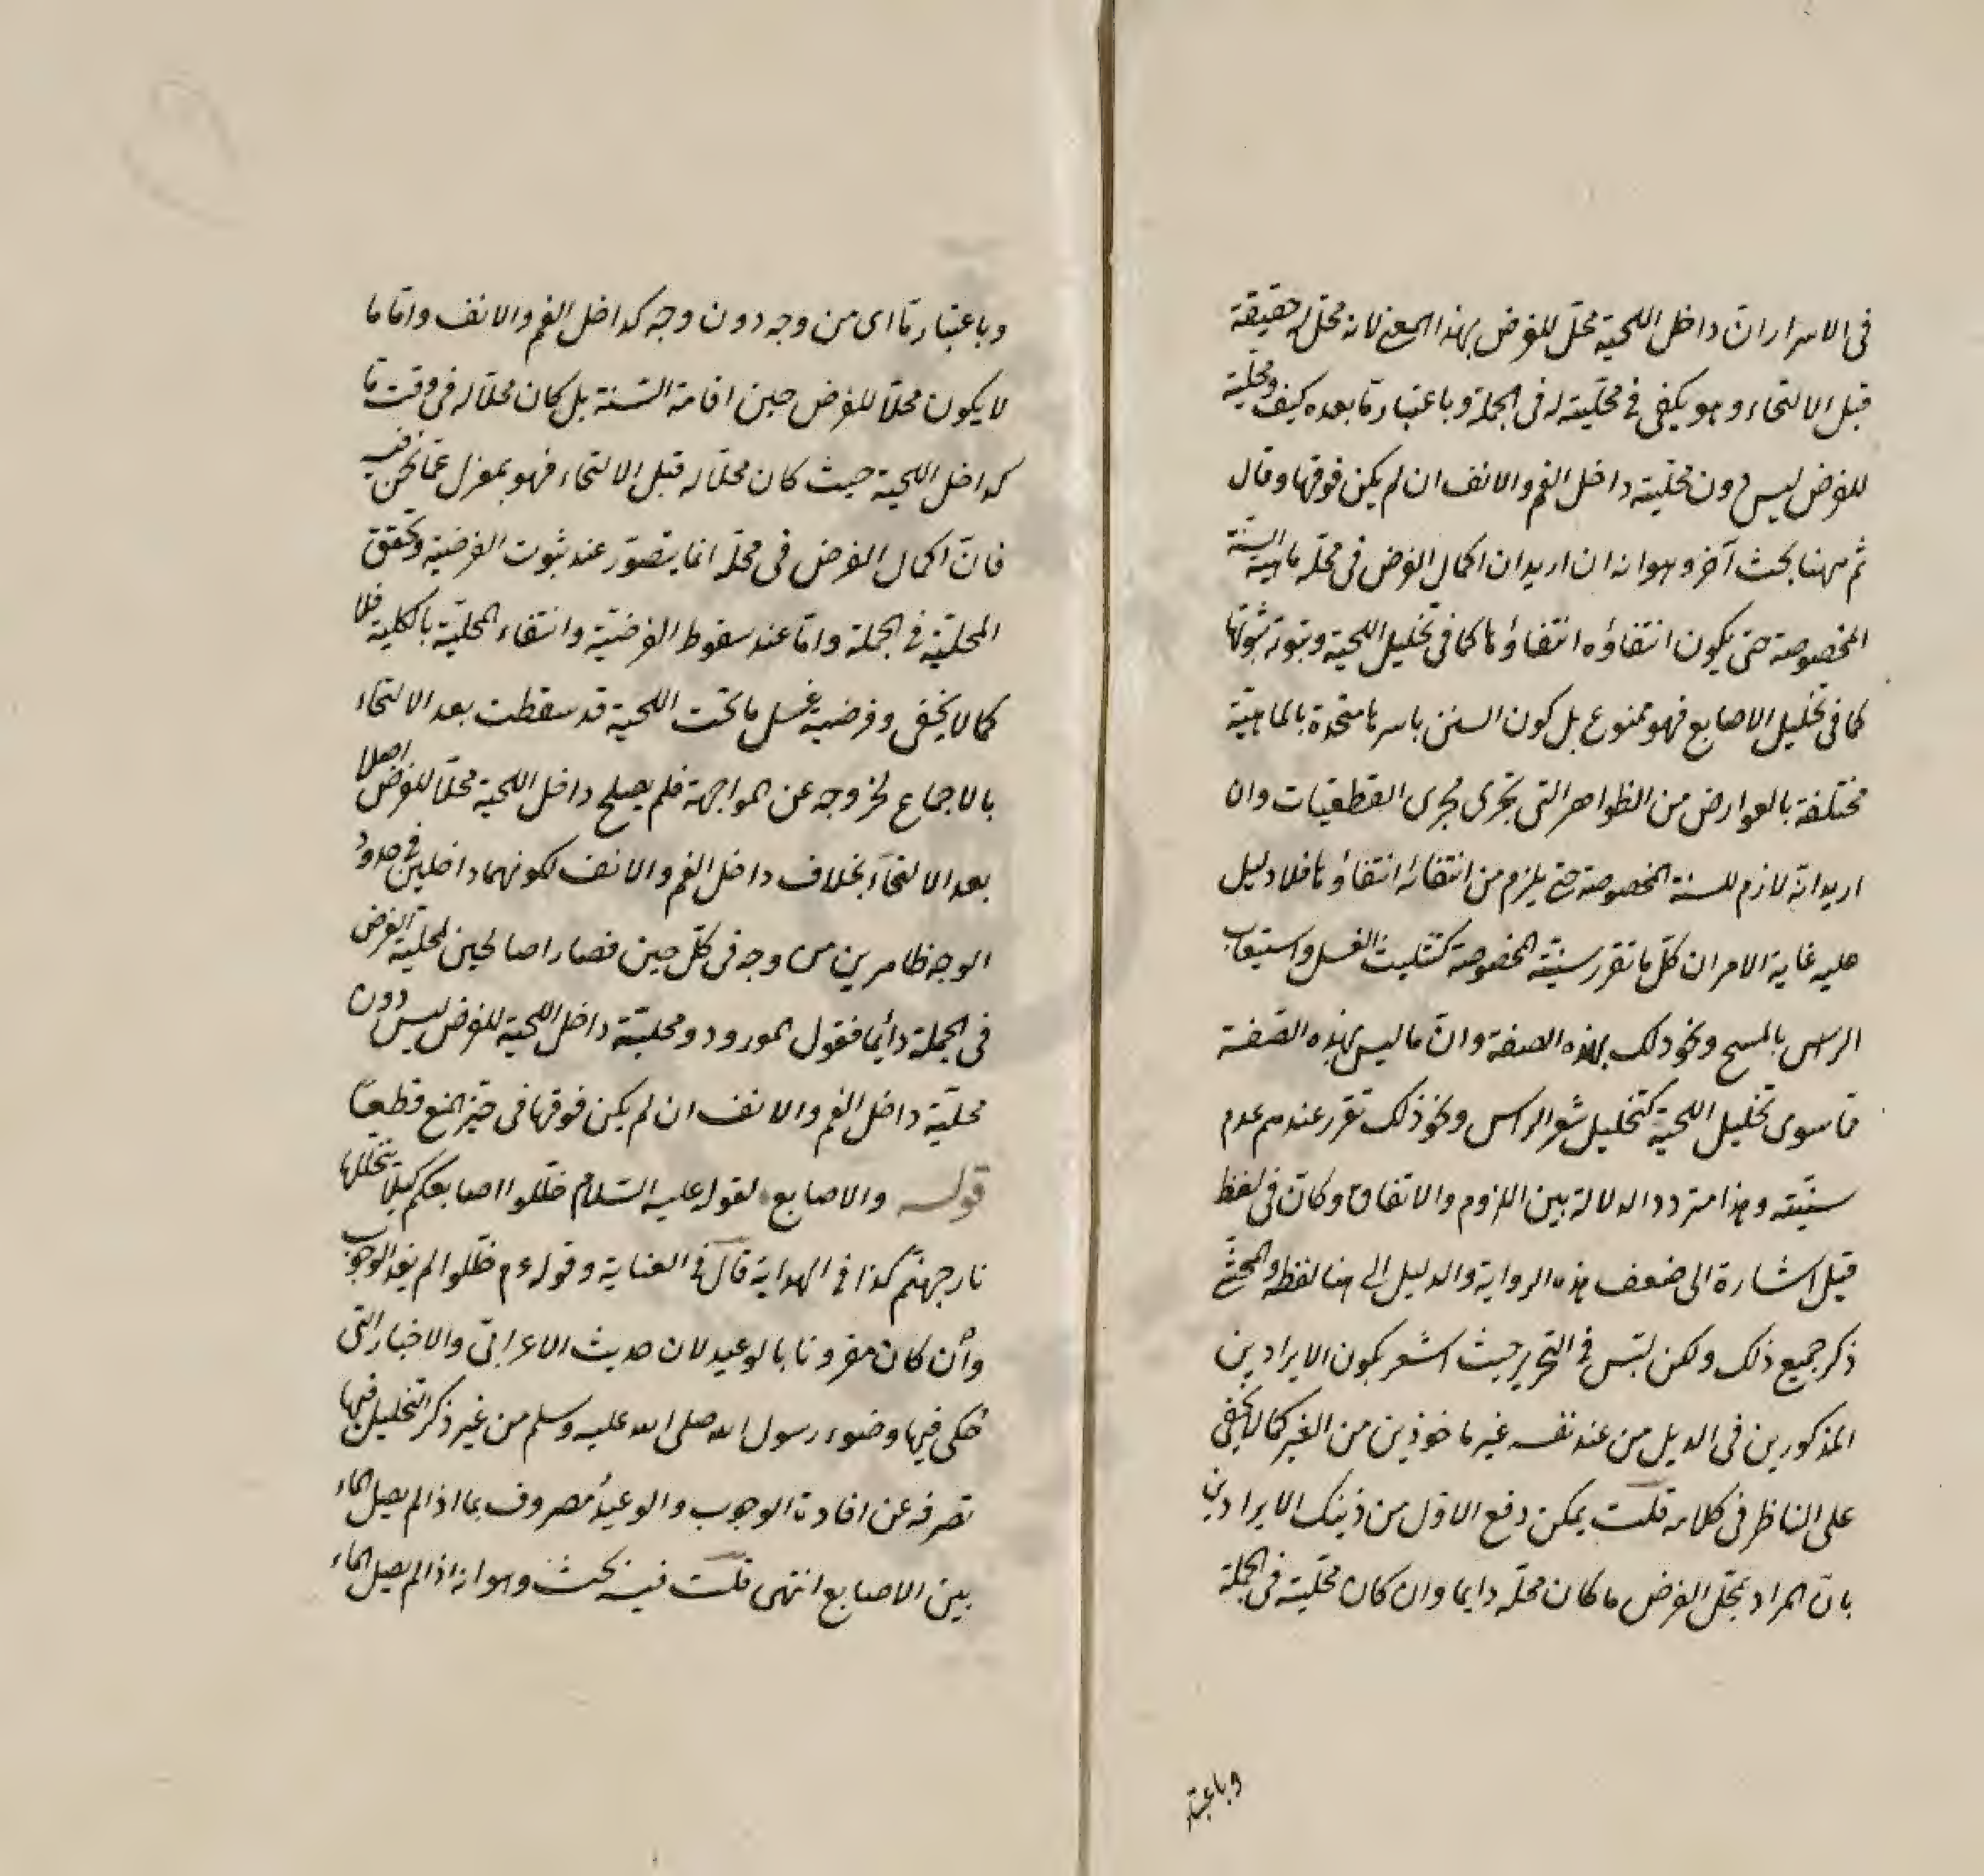 فى الاسرار ان داخل اللحية محل للفرض بهذا المعنى لانه محل له حقيقة
قبل الالتحاء وهو يكفى فى محليته له فى الجملة وباعتبار ما بعده كيف ومحلية
للفرض ليس دون محلية داخل الفم والانف ان لم يكن فوقها وقال
ثم ههنا بحث آخر وهو انه ان اريد ان اكمال الفرض فى محله ماهية السنة
المخصوصة حتى يكون انتفاؤه انتفاؤها كما فى تخليل اللحية وثبوته ثبوتها
كما فى تخليل الاصابع فهو ممنوع بل كون السنن باسرها متحدة بالماهية
مختلفة بالعوارض من الظواهر التى تجرى مجرى القطعيات وان
اريد انه لازم للسنة المخصوصة حتى يلزم من انتفائه انتفاؤها فلا دليل
عليه غاية الامر ان كل ما تقرر سنيته المخصوصة كتثليث الغسل واستيعاب
الراس بالمسح ونحو ذلك بهذه الصفة وان ما ليس بهذه الصفة
مما سوى تخليل اللحية كتخليل شعر الراس ونحو ذلك تقرر عندهم عدم
سنيته وهذا متردد الدلالة بين اللزوم والاتفاق وكان فى لفظ
قيل اشارة الى ضعف هذه الرواية والدليل الى هنا لفظه والمحشى
ذكر جميع ذلك ولكن لبس فى التحرير حيث اشعر بكون الايرادين
المذكورين فى الديل من عند نفسه غير ماخوذين من الغير كما لا يخفى
على الناظر فى كلامه قلت يمكن دفع الاول من ذينك الايرادين
بان المراد بمحل الفرض ما كان محله دايما وان كان محليته فى الجملة
وباعتبار
وباعتبار ما اى من وجه دون وجه كداخل الفم والانف واما ما
لا يكون محلا للفرض حين اقامة السنة بل كان محلا له فى وقت ما
كداخل اللحية حيث كان محلا له قبل الالتحاء فهو بمعزل عما نحن فيه
فان اكمال الفرض فى محله انما يتصور عند ثبوت الفرضية وتحقق
المحلية فى الجملة واما عند سقوط الفرضية وانتفاء المحلية بالكلية فلا
كما لا يخفى وفرضية غسل ما تحت اللحية قد سقطت بعد الالتحاء
بالاجماع لخروجه عن المواجهة فلم يصلح داخل اللحية محلا للفرض اصلا
بعد الالتحاء بخلاف داخل الفم والانف لكونهما داخلين فى حدود
الوجه ظاهرين من وجه فى كل حين فصارا صالحين لمحلية الفرض
فى الجملة دائما فقول المورود ومحلية داخل اللحية للفرض ليس دون
محلية داخل الفم والانف ان لم يكن فوقها فى حيز المنع قطعا
قوله والاصابع لقوله عليه السلام خللوا اصابعكم كيلا تتخللها
نار جهنم كذا فى الهداية قال فى العناية وقوله عم خللوا لم يفد الوجوب
وان كان مقرونا بالوعيد لان حديث الاعرابى والاخبار التى
حكى فيها وضوء رسول الله صلى الله عليه وسلم من غير ذكر التخليل فيها
تصرفه عن افادة الوجوب والوعيد مصروف بما اذا لم يصل الماء
بين الاصابع انتهى قلت فيه بحث وهو انه اذا لم يصل الماء